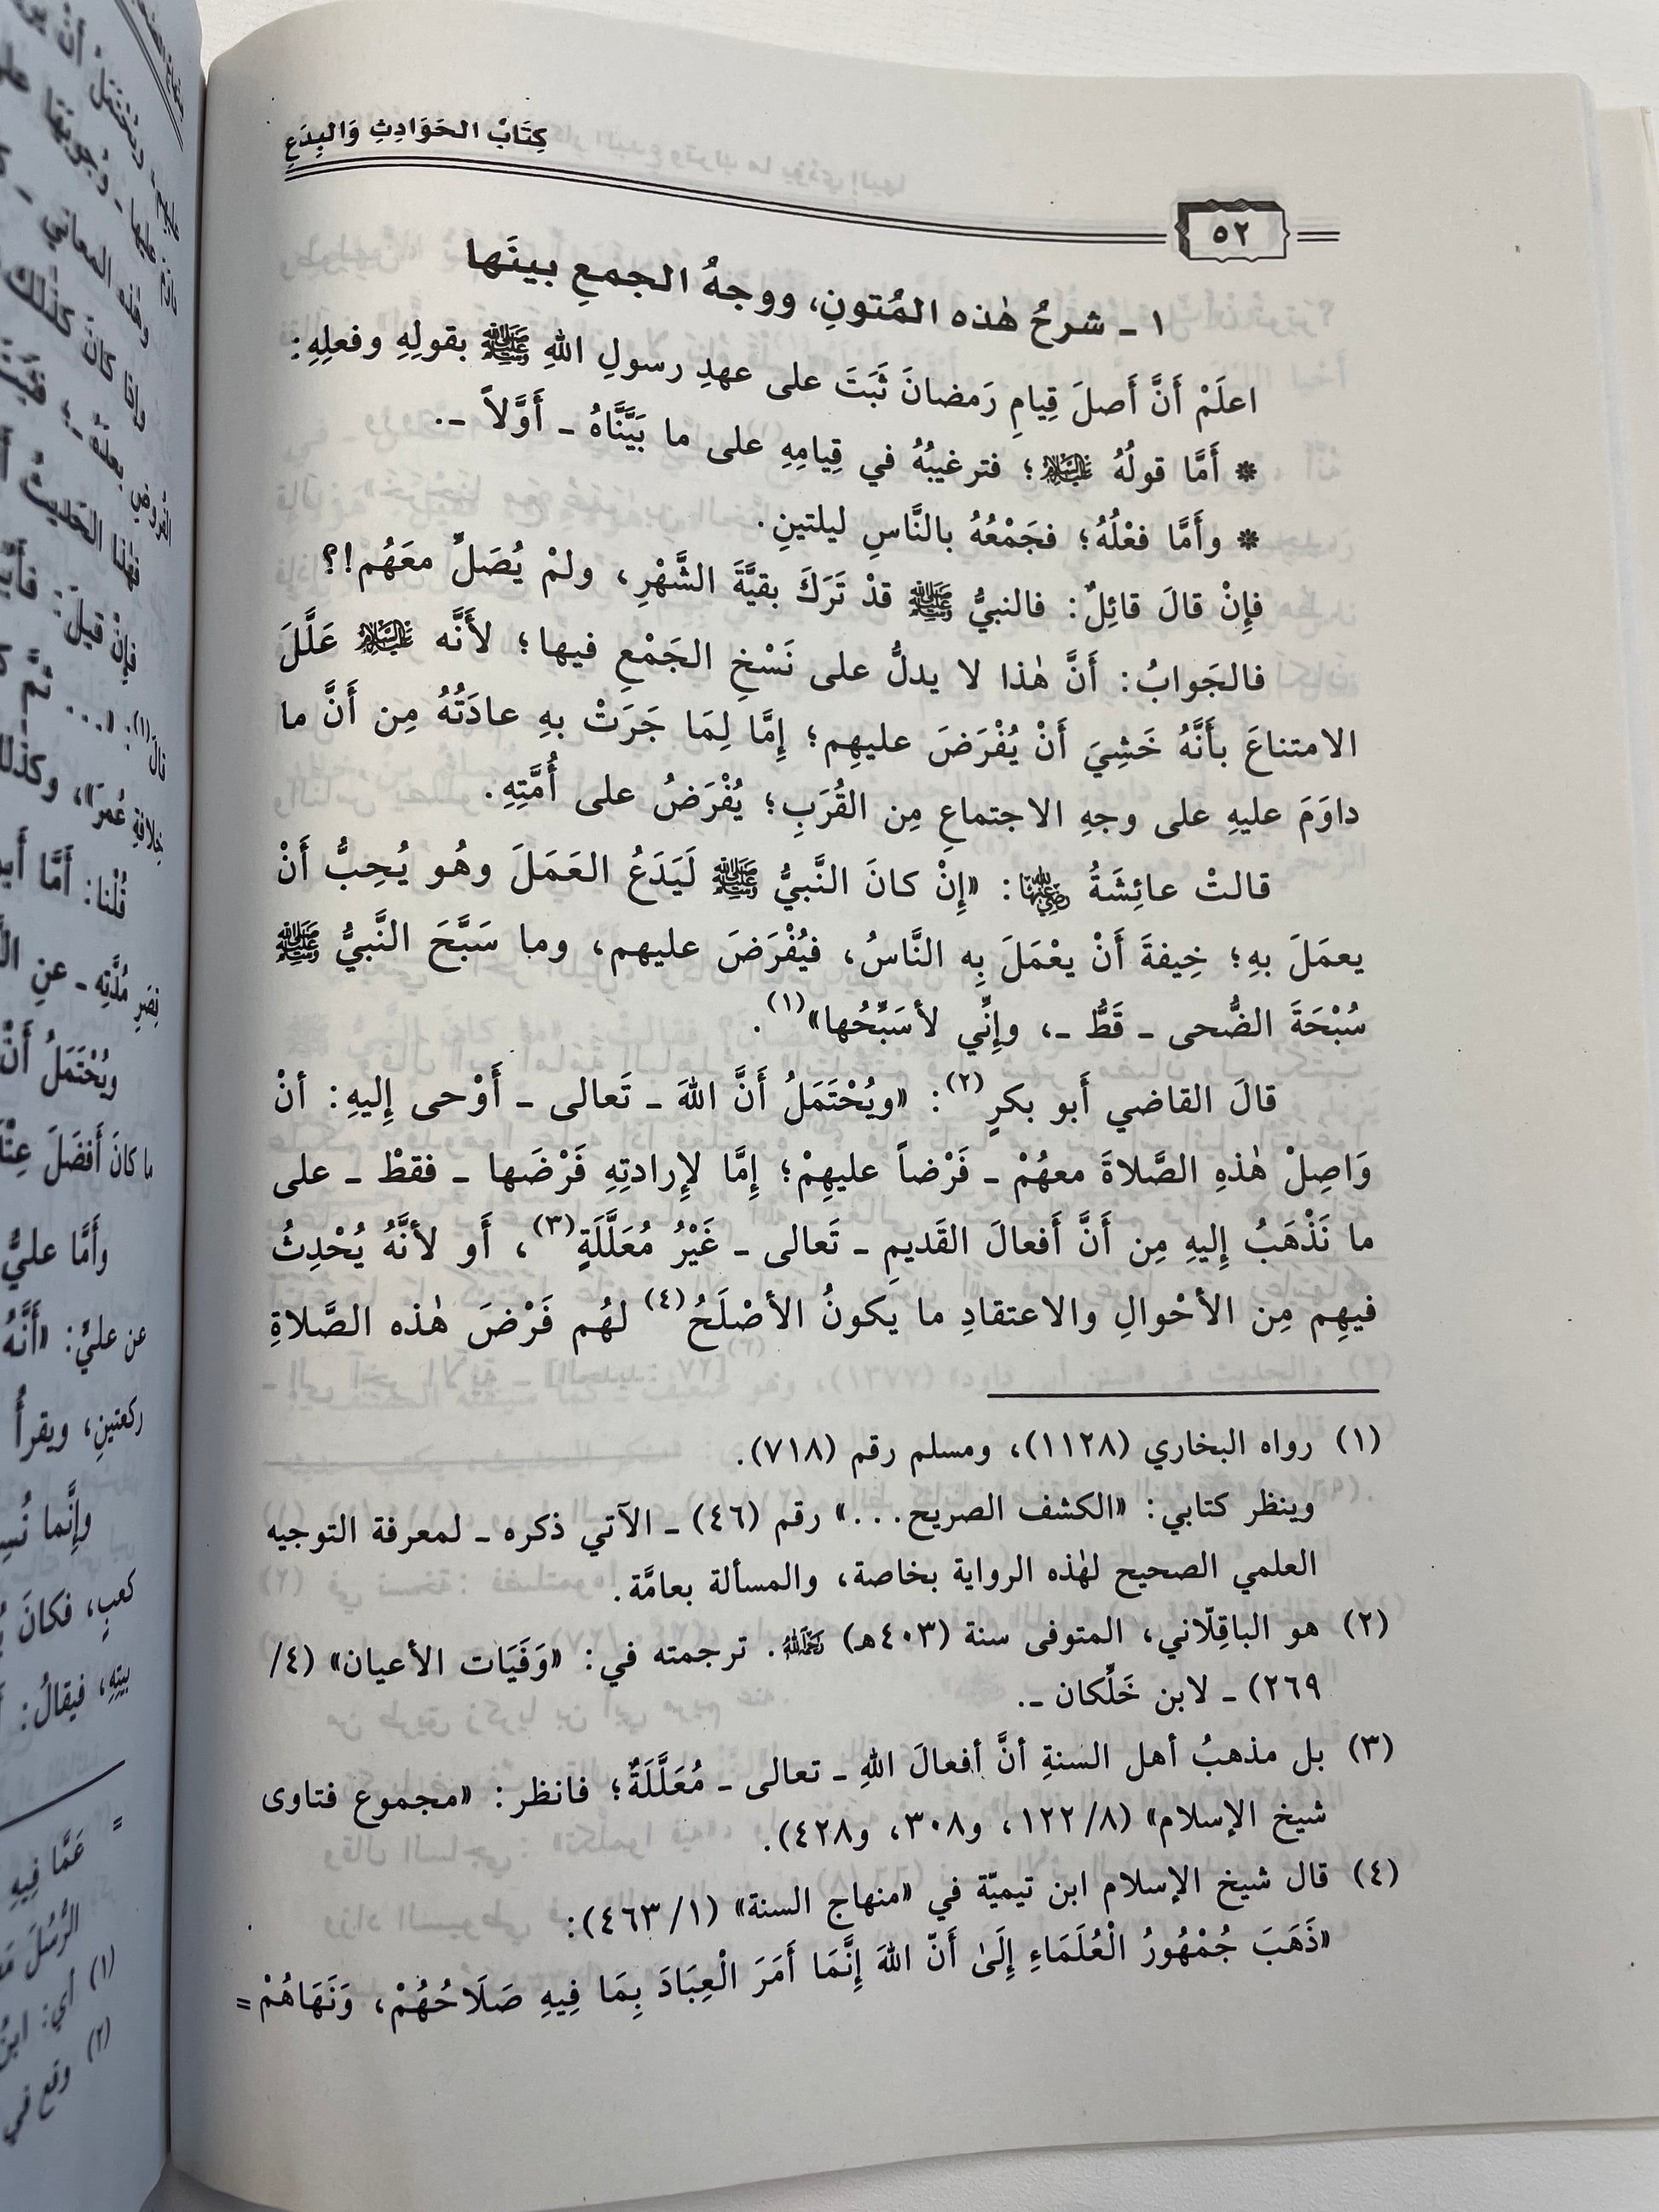 كِتَابُ الحَوَادِثِ وَالبِدَعِ
٥٢
١ ـ شرحُ هٰذه المُتونِ، ووجهُ الجمعِ بينَها
اعلَمْ أَنَّ أَصلَ قِيامِ رَمضانَ ثَبَتَ على عهدِ رسولِ اللهِ ﷺ بقولِهِ وفعلِهِ:
* أَمَّا قولُهُ عليه السلام؛ فترغيبُهُ في قِيامِهِ على ما بَيَّنَّاهُ ـ أَوَّلاً ـ.
* وأَمَّا فعْلُهُ؛ فجَمْعُهُ بالنَّاسِ ليلتينِ.
فإِنْ قالَ قائِلٌ: فالنبيُّ ﷺ قدْ تَرَكَ بقيَّةَ الشَّهْرِ، ولمْ يُصَلِّ معَهُم!؟
فالجَوابُ: أَنَّ هٰذا لا يدلُّ على نَسْخِ الجَمْعِ فيها؛ لأَنَّه عليه السلام عَلَّلَ
الامتناعَ بأَنَّهُ خَشِيَ أَنْ يُفْرَضَ عليهِم؛ إِمَّا لِمَا جَرَتْ بهِ عادَتُهُ مِن أَنَّ ما
داوَمَ عليهِ على وجهِ الاجتماعِ مِن القُرَبِ؛ يُفْرَضُ على أُمَّتِهِ.
قالتْ عائِشَةُ رضي الله عنها: «إِنْ كانَ النَّبيُّ ﷺ لَيَدَعُ العَمَلَ وهُو يُحِبُّ أَنْ
يعمَلَ بهِ؛ خِيفةَ أَنْ يعْمَلَ بِه النَّاسُ، فيُفْرَضَ عليهم، وما سَبَّحَ النَّبيُّ ﷺ
سُبْحَةَ الضُّحى ـ قَطُّ ـ، وإِنِّي لأسَبِّحُها»(١).
قالَ القاضي أَبو بكرٍ(٢): «ويُحْتَمَلُ أَنَّ اللهَ ـ تَعالى ـ أَوْحى إِليهِ: أنْ
وَاصِلْ هٰذهِ الصَّلاةَ معهُمْ ـ فَرْضاً عليهِمْ؛ إِمَّا لإِرادتِهِ فَرْضَها ـ فقطْ ـ على
ما نَذْهَبُ إِليهِ مِن أَنَّ أَفعالَ القَديمِ ـ تَعالى ـ غَيْرُ مُعَلَّلَةٍ(٣)، أَو لأنَّهُ يُحْدِثُ
فيهِم مِن الأحْوالِ والاعتقادِ ما يكونُ الأصْلَحُ(٤) لهُم فَرْضَ هٰذه الصَّلاةِ
(١) رواه البخاري (١١٢٨)، ومسلم رقم (٧١٨).
وينظر كتابي: «الكشف الصريح...» رقم (٤٦) ـ الآتي ذكره ـ لمعرفة التوجيه
العلمي الصحيح لهٰذه الرواية بخاصة، والمسألة بعامَّة.
(٢) هو الباقِلّاني، المتوفى سنة (٤٠٣هـ) رحمه الله. ترجمته في: «وَفَيَات الأعيان» (٤/
٢٦٩) ـ لابن خَلِّكان ـ.
(٣) بل مذهبُ أهل السنةِ أنَّ أفعالَ اللهِ ـ تعالى ـ مُعَلَّلَةٌ؛ فانظر: «مجموع فتاوى
شيخ الإسلام» (٨/ ١٢٢، و٣٠٨، و٤٢٨).
(٤) قال شيخ الإسلام ابن تيميّة في «منهاج السنة» (١/ ٤٦٣):
«ذَهَبَ جُمْهُورُ الْعُلَمَاءِ إِلَىٰ أَنّ اللهَ إِنَّمَا أَمَرَ الْعِبَادَ بِمَا فِيهِ صَلَاحُهُمْ، وَنَهَاهُمْ=